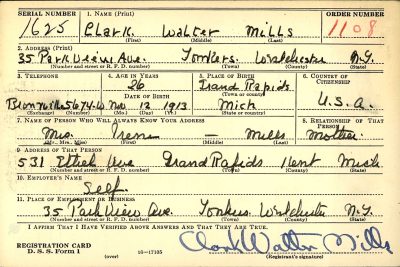 SERIAL NUMBER 1. NAME (Print) ORDER NUMBER
1625 Clark Walter Mills 1108
(First) (Middle) (Last)
2. ADDRESS (Print)
35 Park View Ave. Yonkers. Westchester N.Y.
(Number and street or R. F. D. number) (Town) (County) (State)
3. TELEPHONE 4. AGE IN YEARS 5. PLACE OF BIRTH 6. COUNTRY OF CITIZENSHIP
26 Grand Rapids
DATE OF BIRTH (Town or county)
Nov 12 1913 Mich U.S.A.
(Exchange) (Number) (Mo.) (Day) (Yr.) (State or country)
7. NAME OF PERSON WHO WILL ALWAYS KNOW YOUR ADDRESS 8. RELATIONSHIP OF THAT PERSON
Mrs. Irene — Mills Mother
(Mr., Mrs., Miss) (First) (Middle) (Last)
9. ADDRESS OF THAT PERSON
531 Ave Grand Rapids Kent Mich
(Number and street or R. F. D. number) (Town) (County) (State)
10. EMPLOYER'S NAME
Self
11. PLACE OF EMPLOYMENT OR BUSINESS
35 Park View Ave. Yonkers Westchester N.Y.
(Number and street or R. F. D. number) (Town) (County) (State)
I AFFIRM THAT I HAVE VERIFIED ABOVE ANSWERS AND THAT THEY ARE TRUE.
REGISTRATION CARD
D. S. S. Form 1 16—17105 Clark Walter Mills
(over) (Registrant's signature)